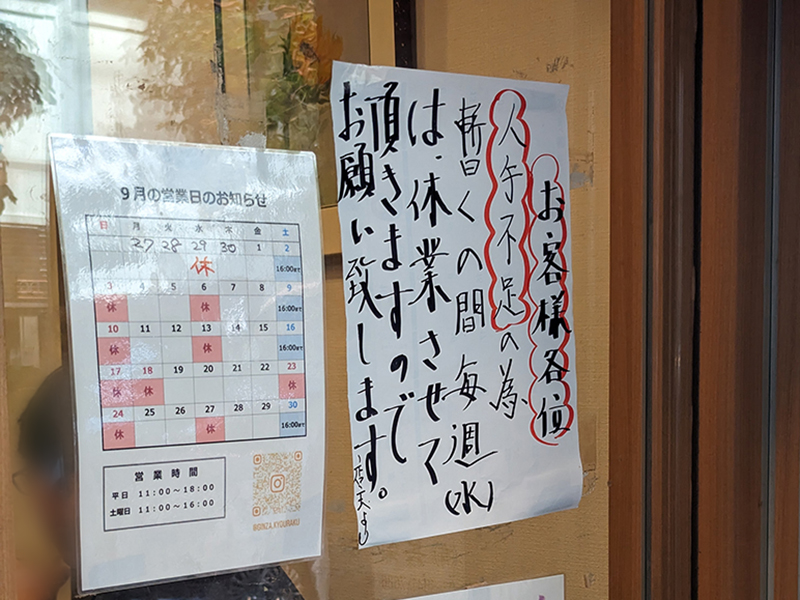 9月の営業日のお知らせ
日 月 火 水 木 金 土
27 28 29 30 1 2
休 16:00まで
3 4 5 6 7 8 9
休 休 16:00まで
10 11 12 13 14 15 16
休 休 16:00まで
17 18 19 20 21 22 23
休 休 休
24 25 26 27 28 29 30
休 休 16:00まで
営業時間
平日 11:00～18:00
土曜日 11:00～16:00
@GINZA.KYOURAKU
お客様各位
人手不足の為
暫くの間毎週(水)
は、休業させて
頂きますので
お願い致します。